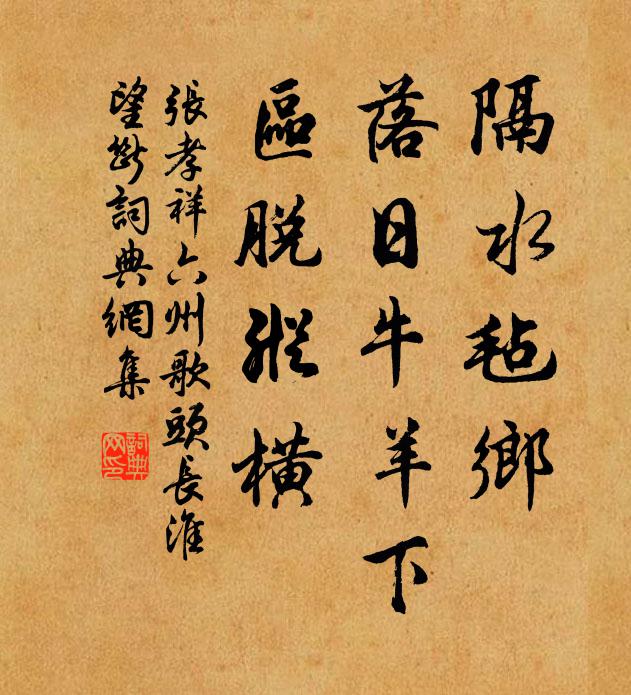 隔水毡鄉
落日牛羊下
區脫縱橫
張孝祥六州歌頭長淮
望斷詞典網集
詞典網印